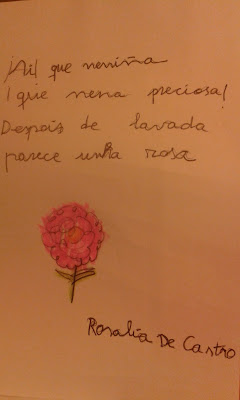 ¡Ai! que neniña
¡que nena preciosa!
Despois de lavada
parece unha rosa
Rosalía De Castro